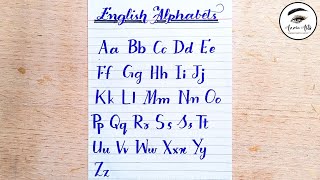 English Alphabets
Aa Bb Cc Dd Ee
Ff Gg Hh Ii Jj
Kk Ll Mm Nn Oo
Pp Qq Rr Ss Ss Tt
Uu Vv Ww Xxx Yy
Zz